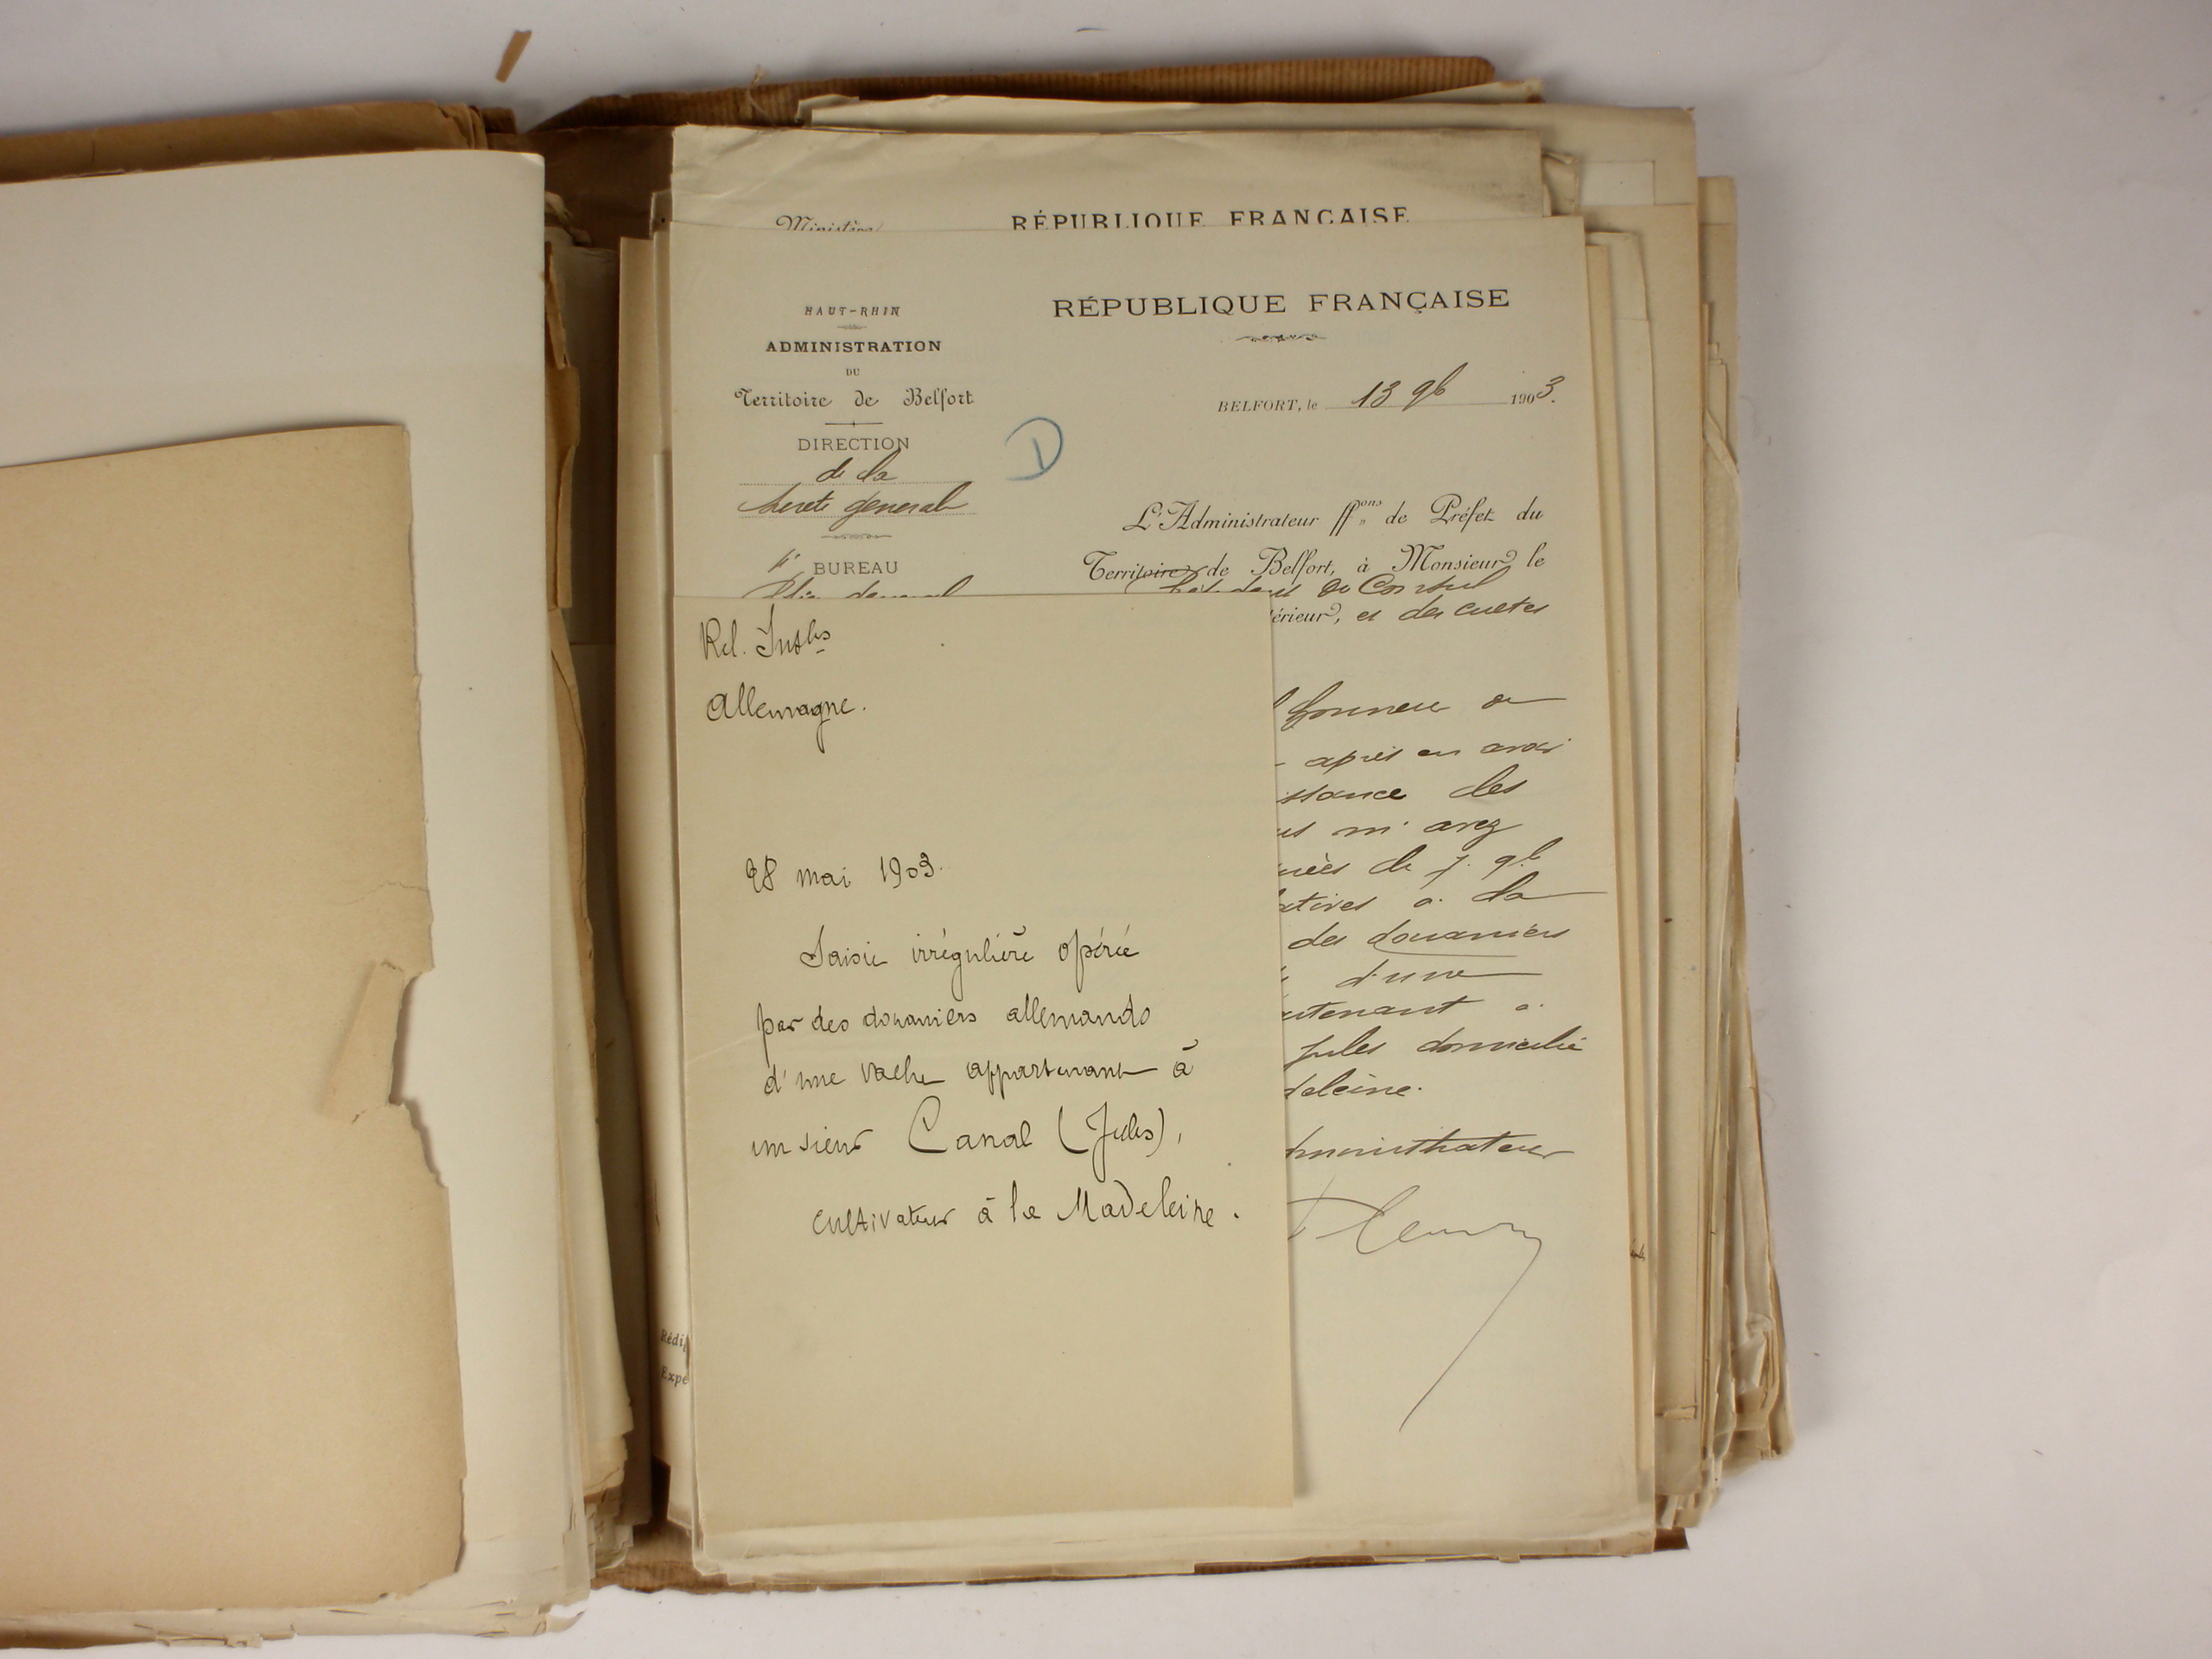 Ministère
RÉPUBLIQUE FRANÇAISE
HAUT-RHIN
ADMINISTRATION
DU
Territoire de Belfort
DIRECTION
de la
Sureté general
1er BUREAU
RÉPUBLIQUE FRANÇAISE
BELFORT, le 13 9b 1903.
D
L'Administrateur ffons de Préfet du
Territoire de Belfort, à Monsieur le
Président du Conseil
érieur, et des cultes
honneur de
après en avoir
issance des
us m'avez
nées le 7. 9b
atives à la
des douaniers
d'une
artenant à
Jules domicilié
deleine.
dministrateur
Rel. Intles
Allemagne.
28 mai 1903.
Saisie irrégulière opérée
par des douaniers allemands
d'une vache appartenant à
un sieur Canal (Jules),
cultivateur à la Madeleine.
Rédi
Expé